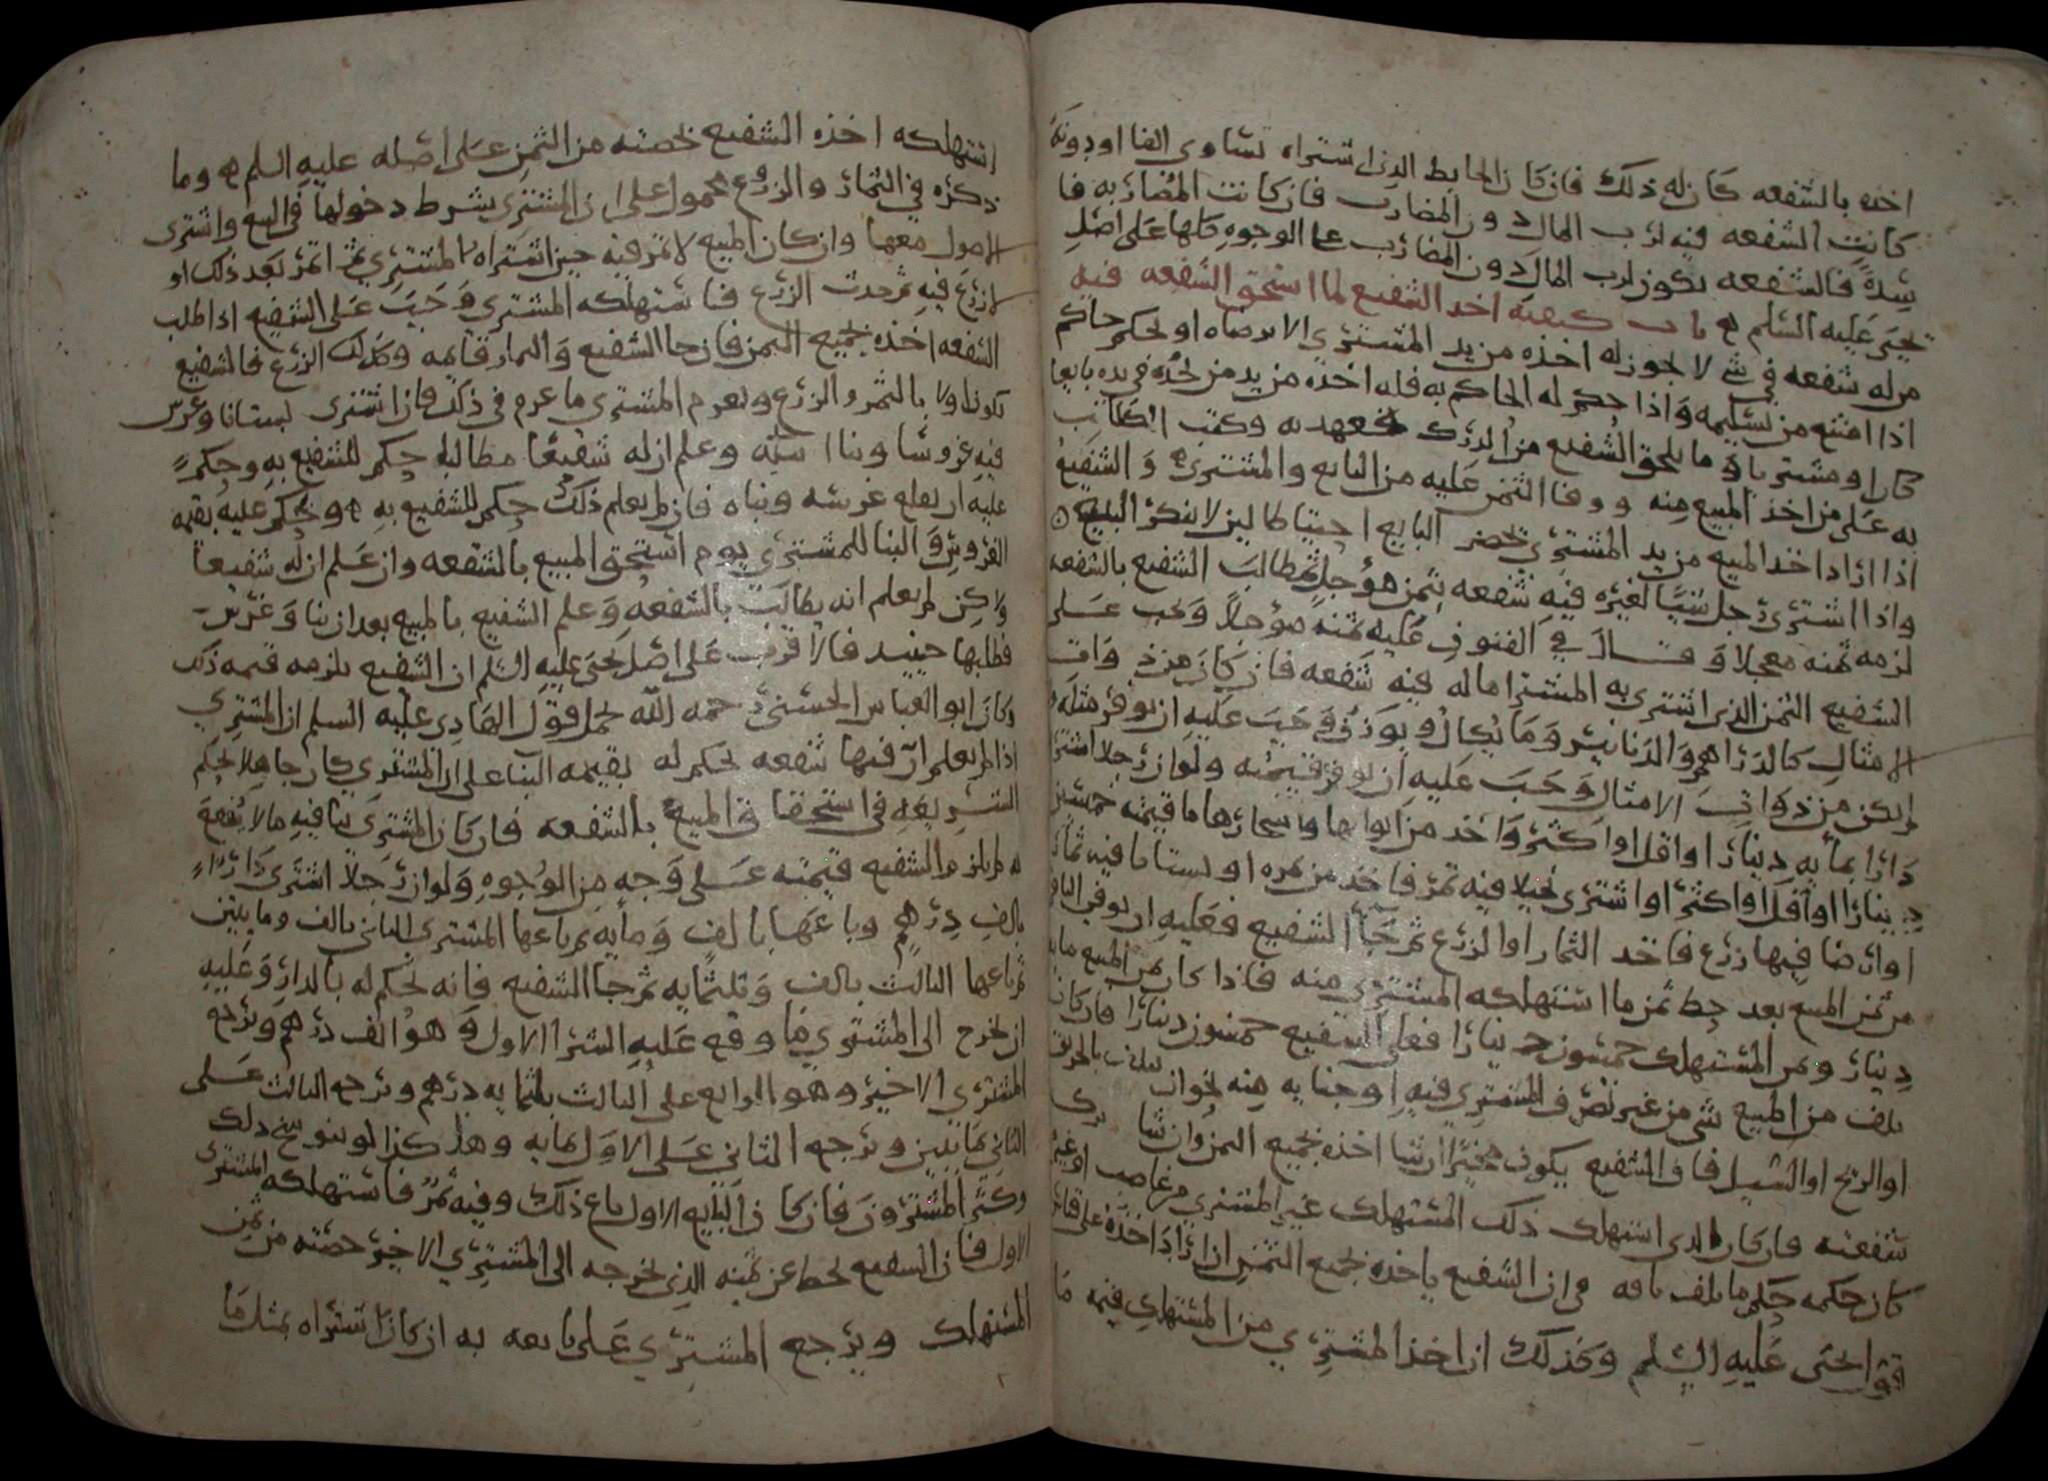 اخذه بالشفعه كان له ذلك فان كان الحايط الذي اشتراه تساوي الفا او دونه
كانت الشفعه فيه لرب المال دون المضارب فان كانت المضاربه فا
سدة فالشفعه يكون لرب المال دون المضارب على الوجوه كلها على اصل
يحيى عليه السلم ه باب كيفيه اخذ الشفيع لما استحق الشفعه فيه
من له شفعه في شي لا يجوز له اخذه من يد المشتري الا برضاه او لحكم حاكم
اذا امتنع من تسليمه واذا حكم له الحاكم به فله اخذه من يد من يجده في يده بايعا
كان او مشتريا وما يلحق الشفيع من الدرك فعهدته وكتب الكتاب
به على من اخذ المبيع منه ووفا الثمن عليه من البايع والمشتري ه والشفيع
اذا اراد اخذ المبيع من يد المشتري يحضر البايع احتياطا ليلا ينكر البيع ه
واذا اشترى رجل شيا لغيره فيه شفعه بثمن مؤجل ثم طالب الشفيع بالشفعه
لزمه ثمنه معجلا وقال في الفنون عليه ثمنه مؤجلا ويجب على
الشفيع الثمن الذي اشترى به المشتري ما له فيه شفعه فان كان من ذوات
الامثال كالدراهم والدنانير وما يكال ويوزن وجب عليه ان يوفر مثله وان
لم يكن من ذوات الامثال وجب عليه ان يوفر قيمته ولو ان رجلا اشترى
دارا بمايه دينار او اقل او اكثر واخذ من ابوابها واشجارها ما قيمته خمسين
دينارا او اقل او اكثر او اشترى نخيلا فيه تمر فاخذ من تمره او بستانا فيه ثمار
او ارضا فيها زرع فاخذ الثمار او الزرع ثم جا الشفيع فعليه ان يوفي الباقي
من ثمن المبيع بعد حط ثمن ما استهلكه المشتري منه فاذا كان ثمن المبيع مايه
دينار وثمن المستهلك خمسون دينارا فعلى الشفيع خمسون دينارا فان كان
تلف من المبيع شي من غير تصرف المشتري فيه او جنايه منه نحو ان يتلف بالحريق
او الريح او السيل فان الشفيع يكون مخيرا ان شا اخذه بجميع الثمن وان شا ترك
شفعته فان كان الذي استهلك ذلك المستهلك غير المشتري من غاصب او غيره
كان حكمه حكم ما تلف بافه في ان الشفيع ياخذه بجميع الثمن اذا اراد اخذه على قياس
قول يحيى عليه السلم وكذلك ان اخذ المشتري من المستهلك قيمه ما
استهلكه اخذه الشفيع بحصته من الثمن على اصله عليه السلم ه وما
ذكره في الثمار والزروع محمول على ان المشتري يشرط دخولها في البيع واشترى
الاصول معها وان كان المبيع لا ثمر فيه حين اشتراه المشتري ثم اثمر بعد ذلك او
لا زرع فيه ثم حدث الزرع فاستهلكه المشتري وجب على الشفيع اذا طلب
الشفعه اخذه بجميع الثمن فان جا الشفيع والثمار قايمه وكذلك الزرع فالشفيع
يكون اولا بالثمر والزرع ويغرم المشتري ما غرم في ذلك فان اشترى بستانا وغرس
فيه غروسا وبنا ابنيه وعلم ان له شفيعا مطالبا حكم للشفيع به وحكم
عليه ان يقلع غرسه وبناه فان لم يعلم ذلك حكم للشفيع به ه ويحكم عليه بقيمه
الغروس والبنا للمشتري يوم استحق المبيع بالشفعه وان علم ان له شفيعا
ولاكن لم يعلم انه يطالب بالشفعه وعلم الشفيع بالمبيع بعد ان بنا وغرس
فطلبها حينيد فالاقرب على اصل يحيى عليه السلم ان الشفيع يلزمه قيمه ذلك
وكان ابو العباس الحسني رحمه الله يحمل قول الهادي عليه السلم ان المشتري
اذا لم يعلم ان فيها شفعه يحكم له بقيمه البنا على ان المشتري كان جاهلا بحكم
الشريعه في استحقاق المبيع بالشفعه فان كان المشتري بنا فيه ما لا ينفعه
له لم يلزم الشفيع قيمته على وجه من الوجوه ولو ان رجلا اشترى دارا
بالف درهم وباعها بالف ومايه ثم باعها المشتري الثاني بالف ومايتين
ثم باعها الثالث بالف وثلثمايه ثم جا الشفيع فانه يحكم له بالدار وعليه
ان يخرج الى المشتري ما وقع عليه الشرا الاول وهو الف درهم ويرجع
المشتري الاخير وهو الرابع على الثالث بثلثمايه درهم ويرجع الثالث على
الثاني بمايتين ويرجع الثاني على الاول بمايه وهكذا لو تنوسخ ذلك
وكثر المشترون فان كان البايع الاول باع ذلك وفيه ثمر فاستهلكه المشتري
الاول فان الشفيع يحط عن ثمنه الذي يخرجه الى المشتري الاخير حصته من ثمن
المستهلك ويرجع المشتري على بايعه به ان كان اشتراه بمثل ما